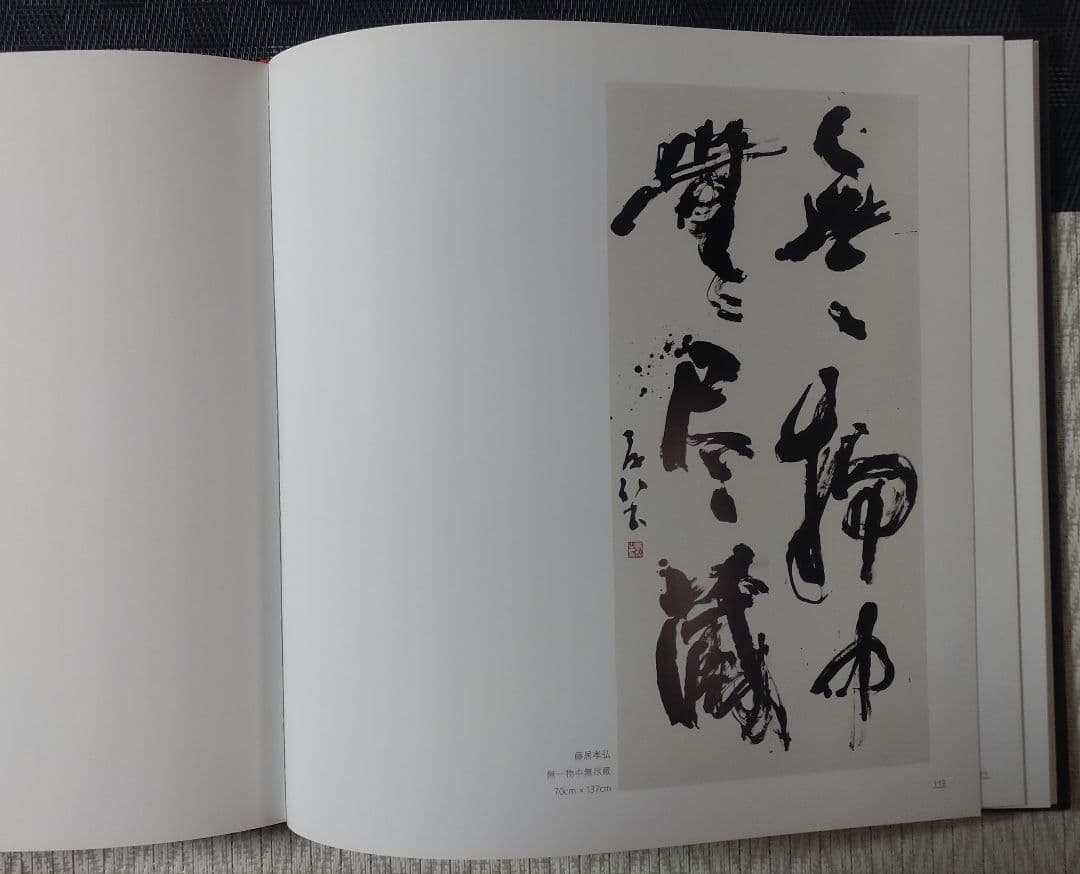 無一物中
無尽蔵
藤居孝弘
無一物中無尽蔵
70cm × 137cm
119